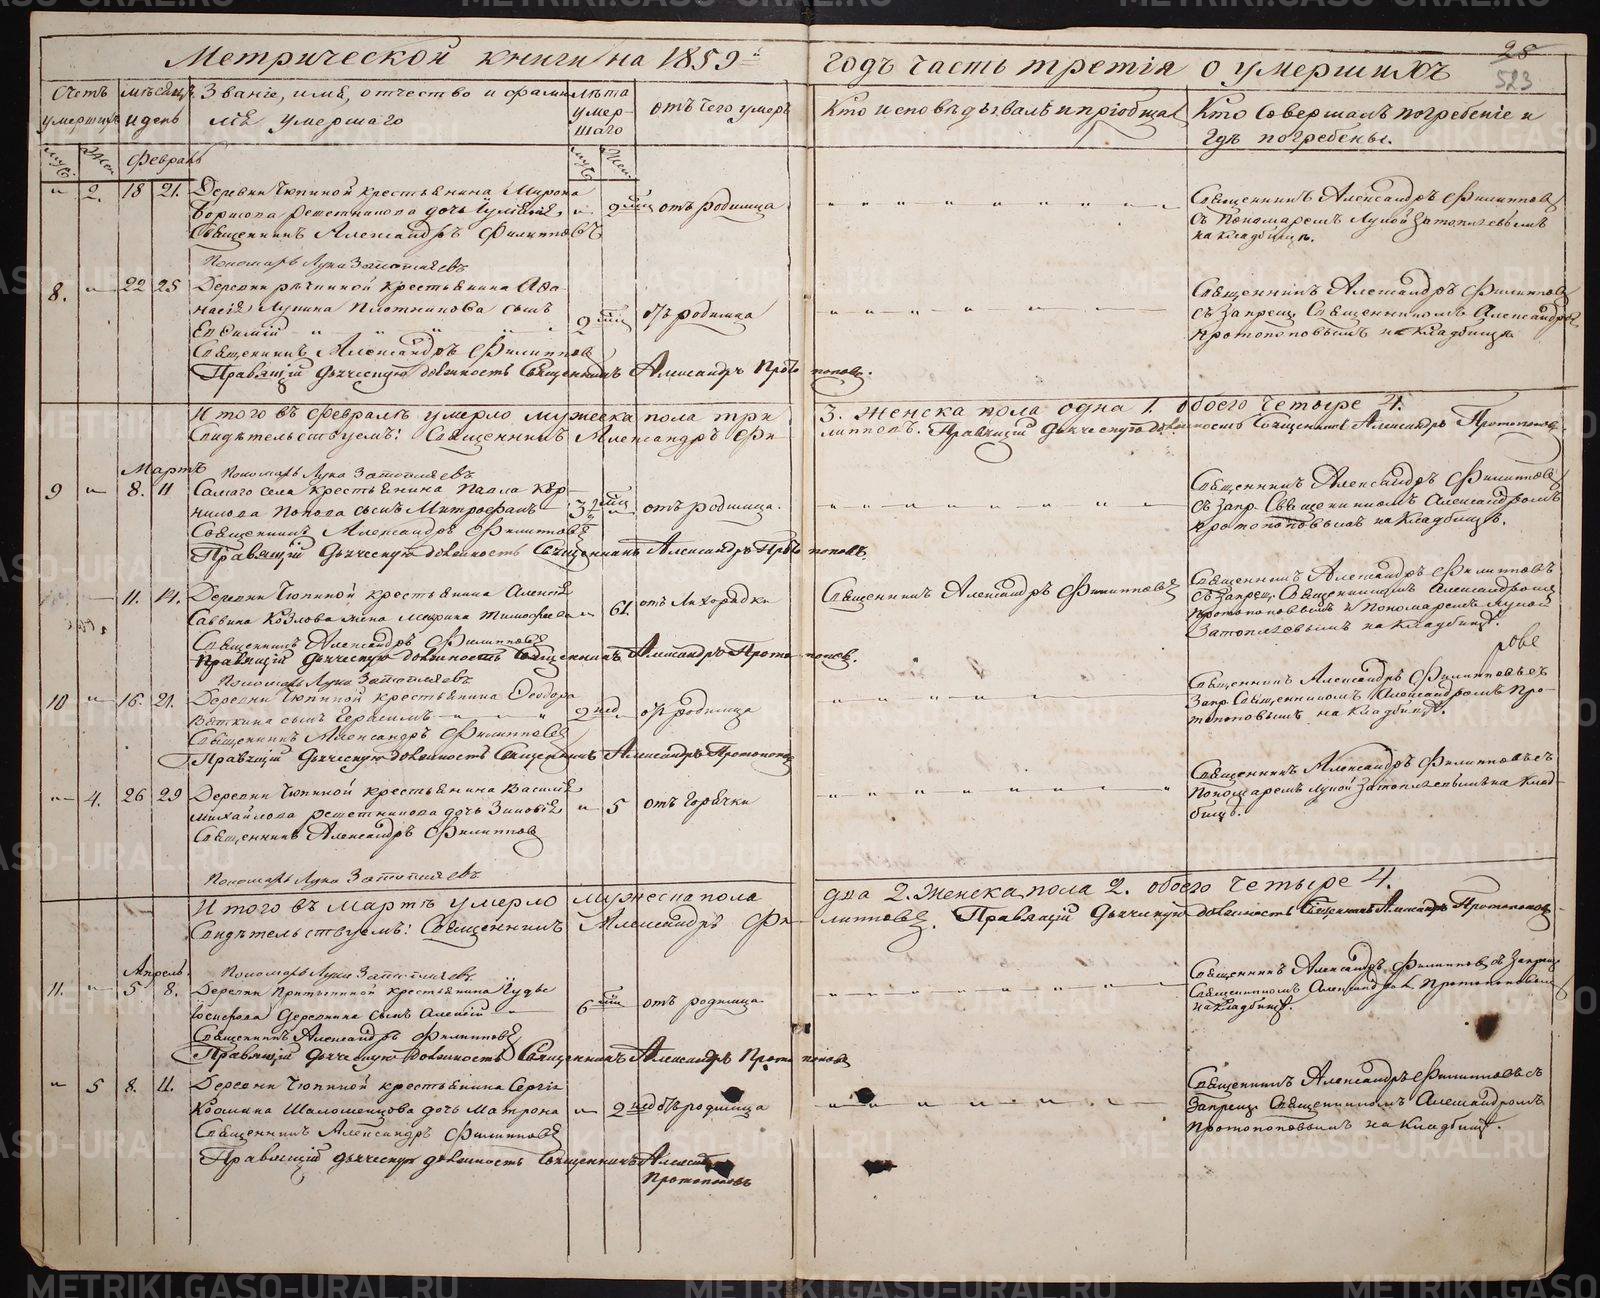 Метрической книги на 1859й годъ часть третiя о умершихъ
28
523
Счетъ умершихъ
мѣсяцъ и день
Званiе, имя, отчество и фами-
лiя умершаго
лѣта
умер-
шаго
отъ чего умеръ
Кто исповѣдывалъ и прiобщалъ
Кто совершалъ погребенiе и
гдѣ погребены.
муж.
жен.
Февраль
муж.
жен.
" 2. 18 21. Деревни Чюпиной крестьянина Мирона
Решетникова дочь
" 2 отъ родимца
Священникъ Александръ Филипповъ
Пономарь Лука
Священникъ Александръ Филипповъ
съ Пономаремъ Лукой
на кладбищѣ.
8. " 22 25 Деревни крестьянина Афа-
насiя Лукина Плотникова сынъ
Евфимiй
2 отъ родимца
Священникъ Александръ Филипповъ
Правящiй дьяческую должность Священникъ Александръ Протопоповъ.
Священникъ Александръ Филипповъ
съ запрещ. Священникомъ Александромъ
Протопоповымъ на кладбищѣ
Итого въ Февралѣ умерло мужеска пола три 3. женска пола одна 1. обоего четыре 4.
Свидѣтельствуемъ: Священникъ Александръ Филипповъ. Правящiй дьяческую должность Священникъ Александръ Протопоповъ.
Пономарь Лука
Мартъ
9 " 8. 11 Самаго села крестьянина Павла
Попова сынъ Митрофанъ
3 отъ родимца.
Священникъ Александръ Филипповъ
Правящiй дьяческую должность Священникъ Александръ Протопоповъ.
Священникъ Александръ Филипповъ
съ запр. Священникомъ Александромъ
Протопоповымъ на кладбищѣ.
11. 14. Деревни Чюпиной крестьянина Алексiя
Саввина Козлова жена Тимофеева
" 61. отъ лихорадки
Священникъ Александръ Филипповъ
Священникъ Александръ Филипповъ
Правящiй дьяческую должность Священникъ Александръ Протопоповъ.
Пономарь Лука
Священникъ Александръ Филипповъ
съ запрещ. Священникомъ Александромъ
Протопоповымъ и Пономаремъ Лукой
на кладбищѣ.
10 " 16. 21. Деревни Чюпиной крестьянина Феодора
Вяткина сынъ Герасимъ
2 нед. отъ родимца
Священникъ Александръ Филипповъ
Правящiй дьяческую должность Священникъ Александръ Протопоповъ
Священникъ Александръ Филипповъ съ
запр. Священникомъ Александромъ Про-
топоповымъ на кладбищѣ.
" 4. 26 29 Деревни Чюпиной крестьянина Василiя
Михайлова Решетникова дочь Зиновiя
" 5 отъ горячки
Священникъ Александръ Филипповъ
Пономарь Лука
Священникъ Александръ Филипповъ съ
Пономаремъ Лукой на клад-
бищѣ.
Итого въ Мартѣ умерло мужеска пола два 2. женска пола 2. обоего четыре 4.
Свидѣтельствуемъ: Священникъ Александръ Филипповъ. Правящiй дьяческую должность Священникъ Александръ Протопоповъ
Пономарь Лука
Апрель.
11. " 5 8. Деревни крестьянина
сынъ Алексiй
6 отъ родимца
Священникъ Александръ Филипповъ
Правящiй дьяческую должность Священникъ Александръ Протопоповъ
Священникъ Александръ Филипповъ съ запрещ.
Священникомъ Александромъ Протопоповымъ
на кладбищѣ.
" 5 8. 11. Деревни Чюпиной крестьянина Сергiя
Козмина Шаломенцова дочь Матрона
" 2 нед отъ родимца
Священникъ Александръ Филипповъ
Правящiй дьяческую должность Священникъ Александръ
Протопоповъ
Священникъ Александръ Филипповъ съ
запрещ. Священникомъ Александромъ
Протопоповымъ на кладбищѣ.
METRIKI.GASO-URAL.RU